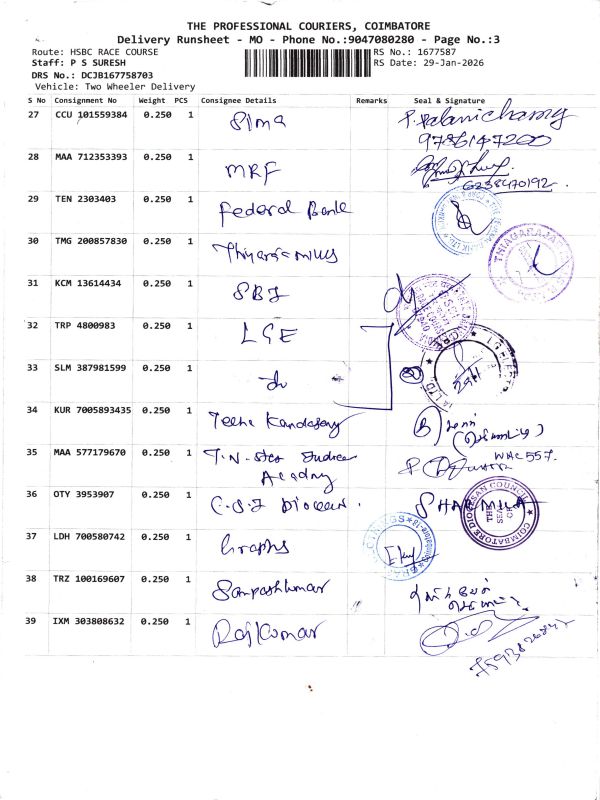 THE PROFESSIONAL COURIERS, COIMBATORE
Delivery Runsheet - MO - Phone No.:9047080280 - Page No.:3
Route: HSBC RACE COURSE
RS No.: 1677587
Staff: P S SURESH
RS Date: 29-Jan-2026
DRS No.: DCJB167758703
Vehicle: Two Wheeler Delivery
S No Consignment No Weight PCS Consignee Details Remarks Seal & Signature
27 CCU 101559384 0.250 1 SIMA P. Palanichamy
9786147200
28 MAA 712353393 0.250 1 MRF
6238470192
29 TEN 2303403 0.250 1 Federal Bank
30 TMG 200857830 0.250 1 THIAGARAJA
31 KCM 13614434 0.250 1 SBI
32 TRP 4800983 0.250 1 LGE
33 SLM 387981599 0.250 1 do
34 KUR 7005893435 0.250 1 Kandasamy
35 MAA 577179670 0.250 1 T.N. State Judicial WHC 557.
Academy
36 OTY 3953907 0.250 1 C.S.I Diocesan. SHARMILA
COIMBATORE DIOCESAN COUNCIL
37 LDH 700580742 0.250 1 Graphs
38 TRZ 100169607 0.250 1 Sampathkumar
39 IXM 303808632 0.250 1 Rajkumar